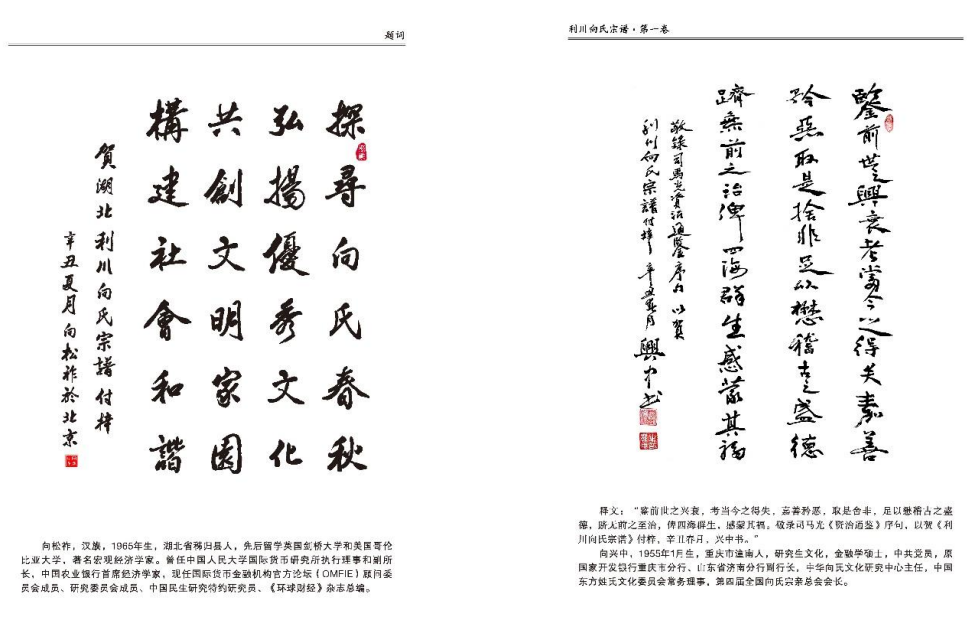 题词
探尋向氏春秋
弘揚優秀文化
共創文明家園
構建社會和諧
賀湖北利川向氏宗譜付梓
辛丑夏月向松祚於北京
向松祚，汉族，1965年生，湖北省秭归县人，先后留学英国剑桥大学和美国哥伦
比亚大学，著名宏观经济学家。曾任中国人民大学国际货币研究所执行理事和副所
长，中国农业银行首席经济学家，现任国际货币金融机构官方论坛（OMFIE）顾问委
员会成员、研究委员会成员、中国民生研究特约研究员、《环球财经》杂志总编。
利川向氏宗谱·第一卷
鑒前世之興衰考當今之得失嘉善
矜惡取是捨非足以懋稽古之盛德
躋無前之至治俾四海群生感蒙其福
敬錄司馬光資治通鑒序句以賀
利川向氏宗譜付梓辛丑春月興中书
释文：“鉴前世之兴衰，考当今之得失，嘉善矜恶，取是舍非，足以懋稽古之盛
德，跻无前之至治，俾四海群生，感蒙其福。敬录司马光《资治通鉴》序句，以贺《利
川向氏宗谱》付梓，辛丑春月，兴中书。”
向兴中，1955年1月生，重庆市潼南人，研究生文化，金融学硕士，中共党员，原
国家开发银行重庆市分行、山东省济南分行副行长，中华向氏文化研究中心主任，中国
东方姓氏文化委员会常务理事，第四届全国向氏宗亲总会会长。